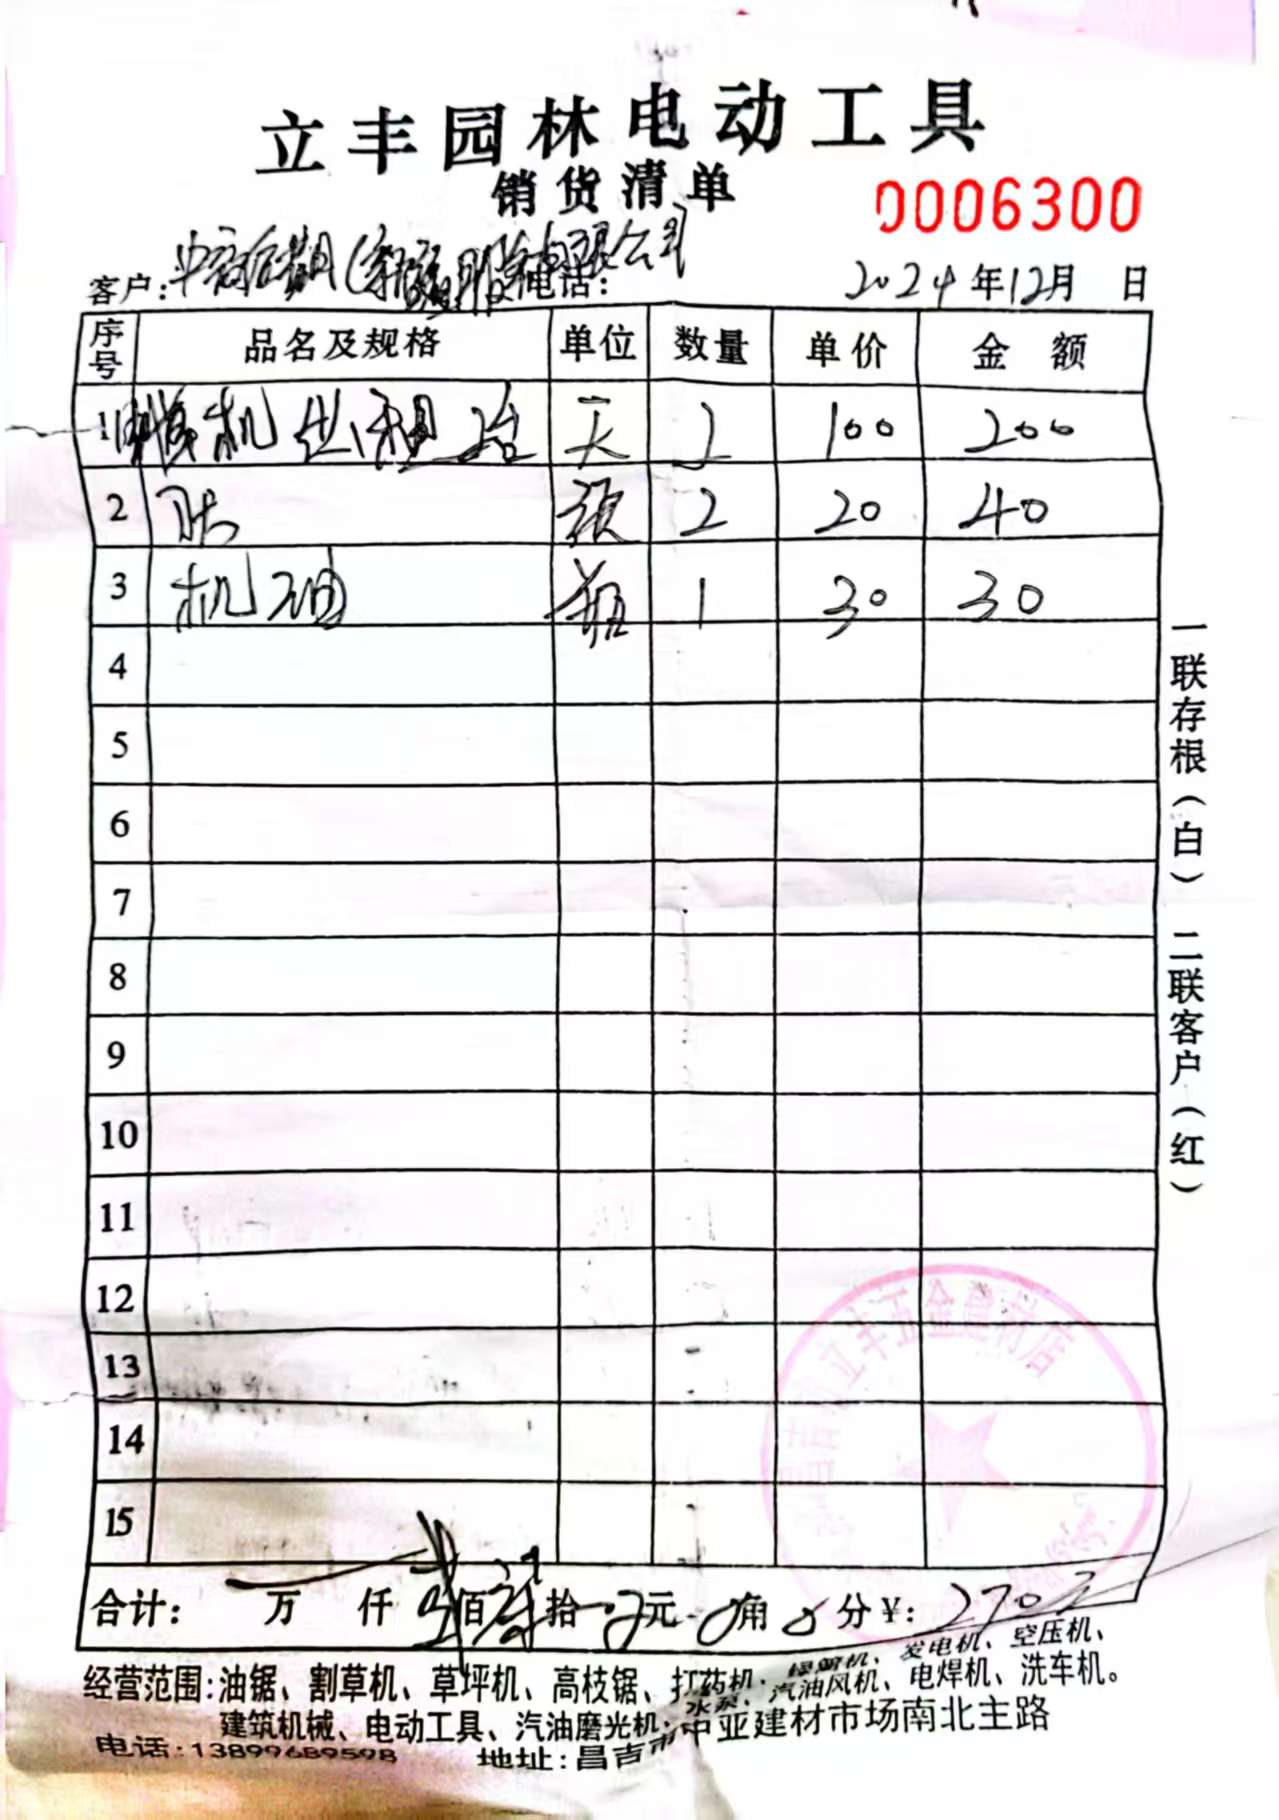 立丰园林电动工具
销货清单
0006300
客户: 有限公司 电话:
2024年12月 日
序号 品名及规格 单位 数量 单价 金额
1 机出租 2台 天 1 100 200
2 2 20 40
3 机油 瓶 1 30 30
4
5
6
7
8
9
10
11
12
13
14
15
合计: 万 仟 佰 拾 0元 0角 0分 ¥: 270元
经营范围:油锯、割草机、草坪机、高枝锯、打药机、绿篱机、发电机、空压机、
水泵、汽油风机、电焊机、洗车机。
建筑机械、电动工具、汽油磨光机;
电话:13899689598 地址:昌吉市中亚建材市场南北主路
一联存根(白) 二联客户(红)
立丰五金